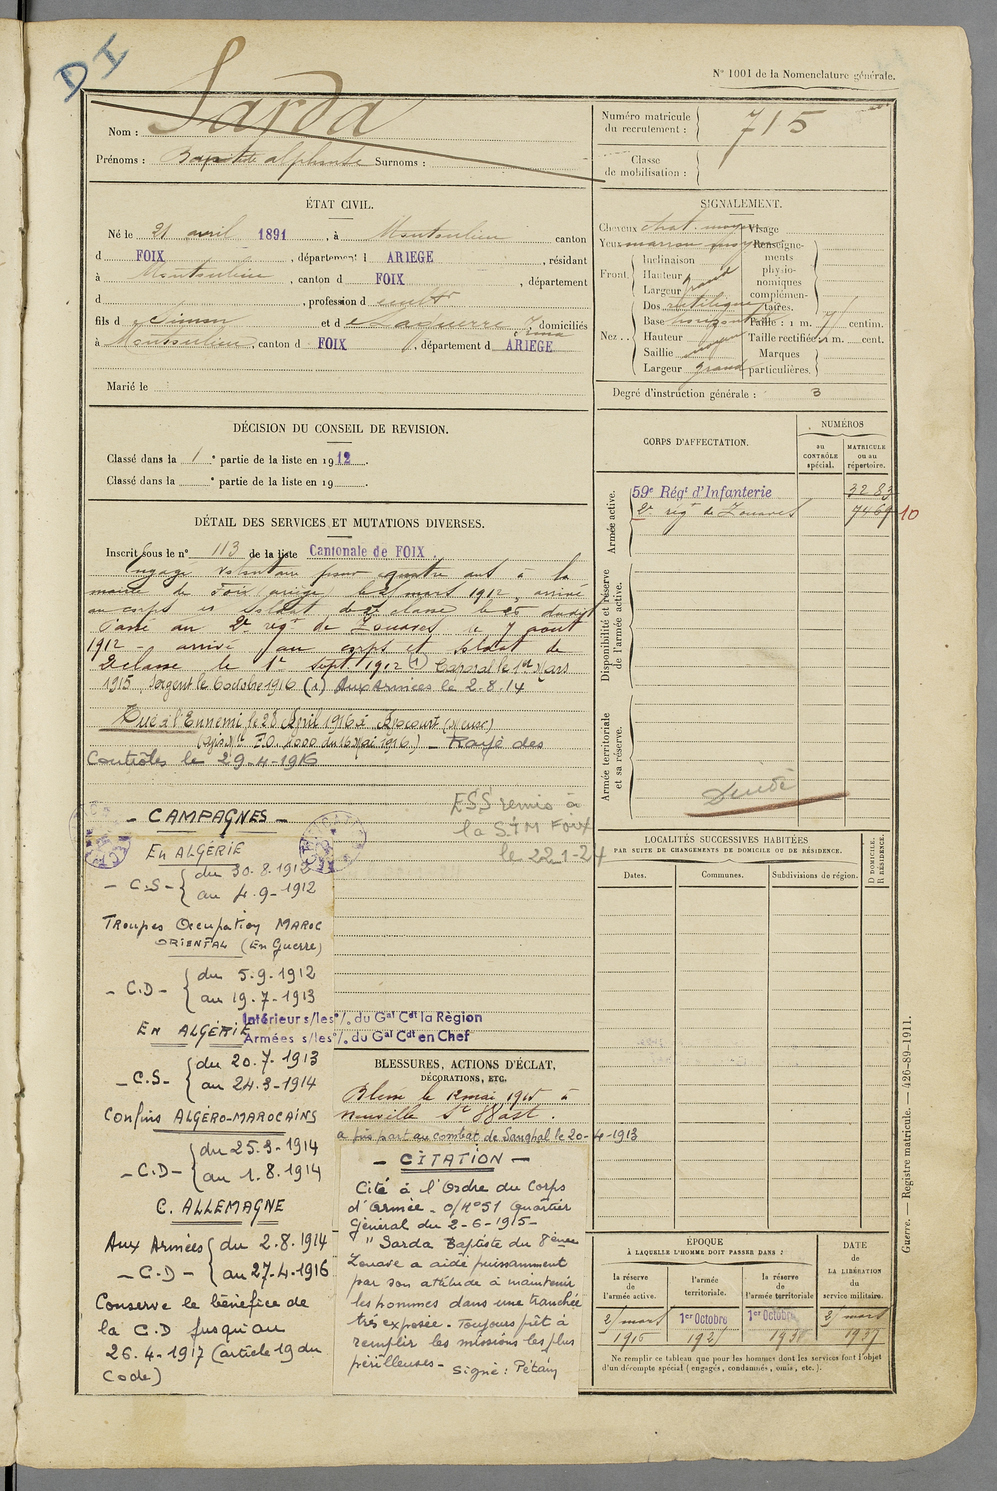 DI
N° 1001 de la Nomenclature générale.
Nom : Sarda
Prénoms : Baptiste alphonse Surnoms :
Numéro matricule du recrutement : 715
Classe de mobilisation :
ÉTAT CIVIL.
Né le 21 avril 1891, à Montoulieu canton
d FOIX, département d ARIEGE, résidant
à Montoulieu, canton d FOIX, département
d , profession d cultr
fils d e Simon et d e Laguerre, domiciliés
à Montoulieu, canton d FOIX, département d ARIEGE
Marié le
SIGNALEMENT.
Cheveux chat. moyen Visage
Yeux marron moy Renseigne-
ments
physio-
nomiques
complémen-
taires.
Front. Inclinaison
Hauteur
Largeur grand
Nez. Dos rectiligne
Base horizontale Taille : 1 m. centim.
Hauteur Taille rectifiée : 1 m. cent.
Saillie moyen Marques
Largeur grand particulières.
Degré d'instruction générale : 3
DÉCISION DU CONSEIL DE REVISION.
Classé dans la 1 e partie de la liste en 1912.
Classé dans la e partie de la liste en 19 .
DÉTAIL DES SERVICES ET MUTATIONS DIVERSES.
Inscrit sous le n° 113 de la liste Cantonale de FOIX
Engagé volontaire pour quatre ans à la
mairie de Foix (ariège) le 2 mars 1912, arrivé
au corps et soldat de 2e classe le dudit
Passé au 2e régt de Zouaves le 7 août
1912 - arrivé au corps et soldat de
2e classe le 1er sept 1912 (1) Caporal le 1er Mars
1915 Sergent le 6 octobre 1916 (1) Aux Armées le 2.8.14
Tué à l'Ennemi le 28 Avril 1916 à Avocourt (Meuse)
(avis Mle F.O. 1000 du 16 Mai 1916.) - Rayé des
Contrôles le 29-4-1916
ESS remis à
la S/M Foix
le 22-1-24
CORPS D'AFFECTATION.
NUMÉROS
au CONTRÔLE spécial.
MATRICULE ou au répertoire.
Armée active.
59e Régt d'Infanterie 3283
2e régt de Zouaves 7469 10
Disponibilité et réserve de l'armée active.
Armée territoriale et sa réserve.
Décédé
- CAMPAGNES -
En ALGÉRIE
- C.S - du 30.8.1912
au 4.9-1912
Troupes Occupation MAROC
ORIENTAL (En Guerre)
- C.D - du 5.9.1912
au 19.7-1913
En ALGÉRIE
- C.S - du 20.7.1913
au 24.3-1914
Confins ALGERO-MAROCAINS
- C.D - du 25.3-1914
au 1.8.1914
C. ALLEMAGNE
Aux Armées du 2.8.1914
- C.D - au 27.4.1916
Conserve le bénéfice de
la C.D jusqu'au
26.4-1917 (article 19 du
Code)
Intérieur s/les o/. du Gal Cdt la Région
Armées s/les o/. du Gal Cdt en Chef
BLESSURES, ACTIONS D'ÉCLAT,
DÉCORATIONS, ETC.
Blessé le 12 mai 1915 à
Neuville St Waast.
a pris part au combat de Sanghal le 20-4-1913
- CITATION -
Cité à l'Ordre du Corps
d'Armée - O/N° 51 Quartier
Général du 2-6-1915-
" Sarda Baptiste du 8ème
Zouave a aidé puissamment
par son attitude à maintenir
les hommes dans une tranchée
très exposée - Toujours prêt à
remplir les missions les plus
périlleuses -
Signé : Pétain
LOCALITÉS SUCCESSIVES HABITÉES
PAR SUITE DE CHANGEMENTS DE DOMICILE OU DE RÉSIDENCE.
Dates.
Communes.
Subdivisions de région.
D DOMICILE. R RÉSIDENCE.
ÉPOQUE
À LAQUELLE L'HOMME DOIT PASSER DANS :
la réserve de l'armée active.
l'armée territoriale.
la réserve de l'armée territoriale
DATE de LA LIBÉRATION du service militaire.
2 mars 1916
1er Octobre 192
1er Octobre 193
2 mars 1937
Ne remplir ce tableau que pour les hommes dont les services font l'objet
d'un décompte spécial (engagés, condamnés, omis, etc.).
Guerre. — Registre matricule. — 426-89-1911.